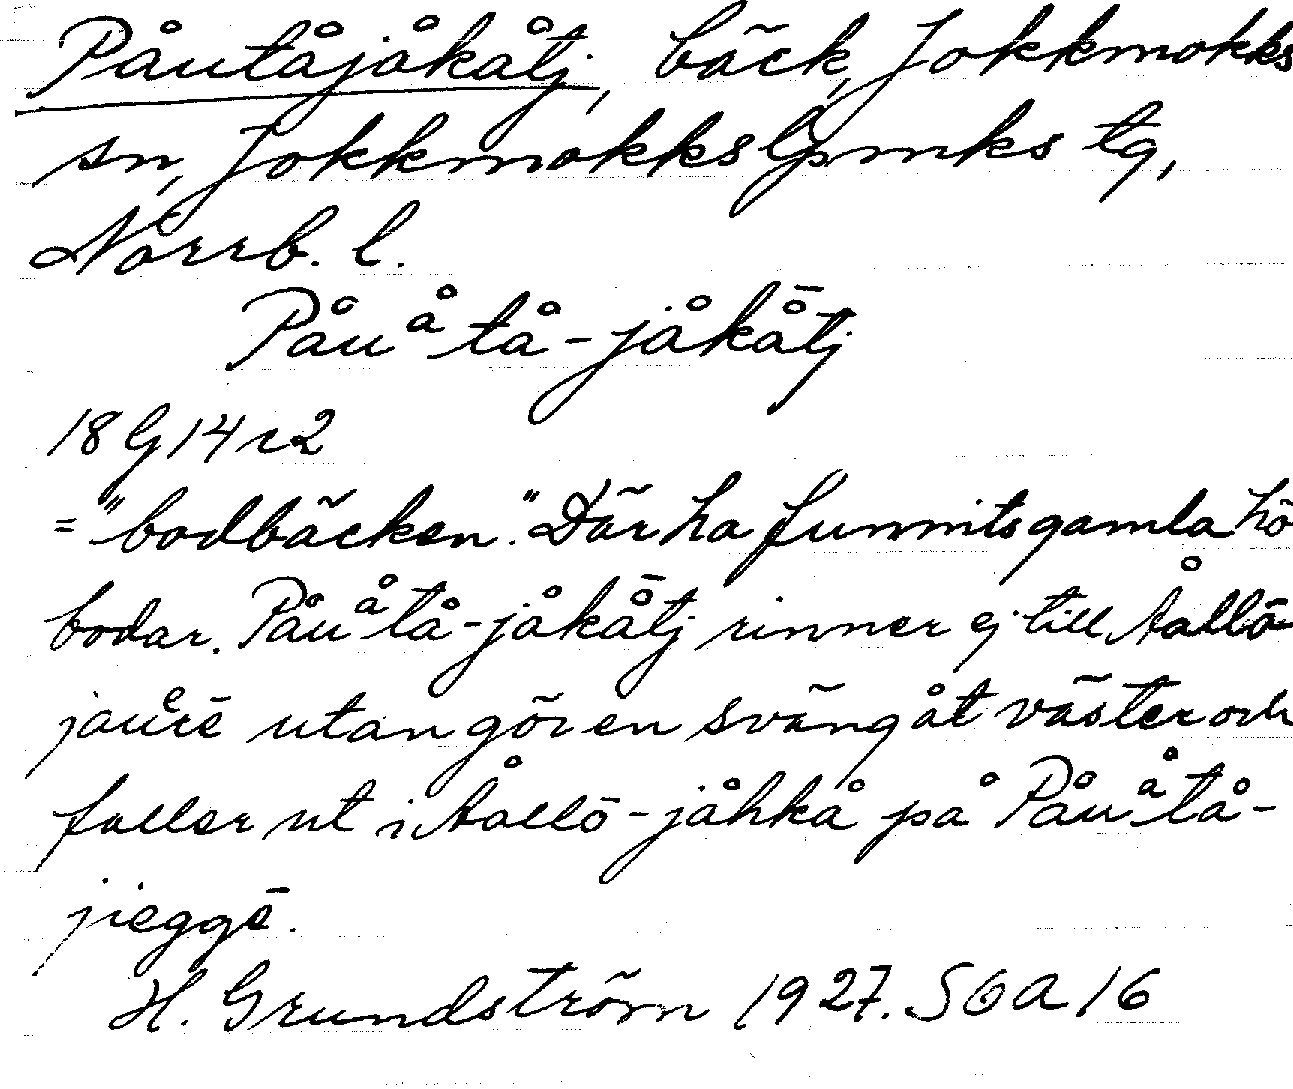 Påutåjåkåtj, bäck, Jokkmokks
sn, Jokkmokks lpmks tg,
Norrb. l.
Påuᵃ̊tå-jåkå̄tj
18 G 14 r 2
= "bodbäcken." Där ha funnits gamla hö
bodar. Påuᵃ̊tå-jåkå̄tj rinner ej till Ållō
jauᵉrē utan gör en sväng åt väster och
faller ut i Ållō-jåhkå på Påuᵃ̊tå-
jieggē.
H. Grundström 1927. SOA 16